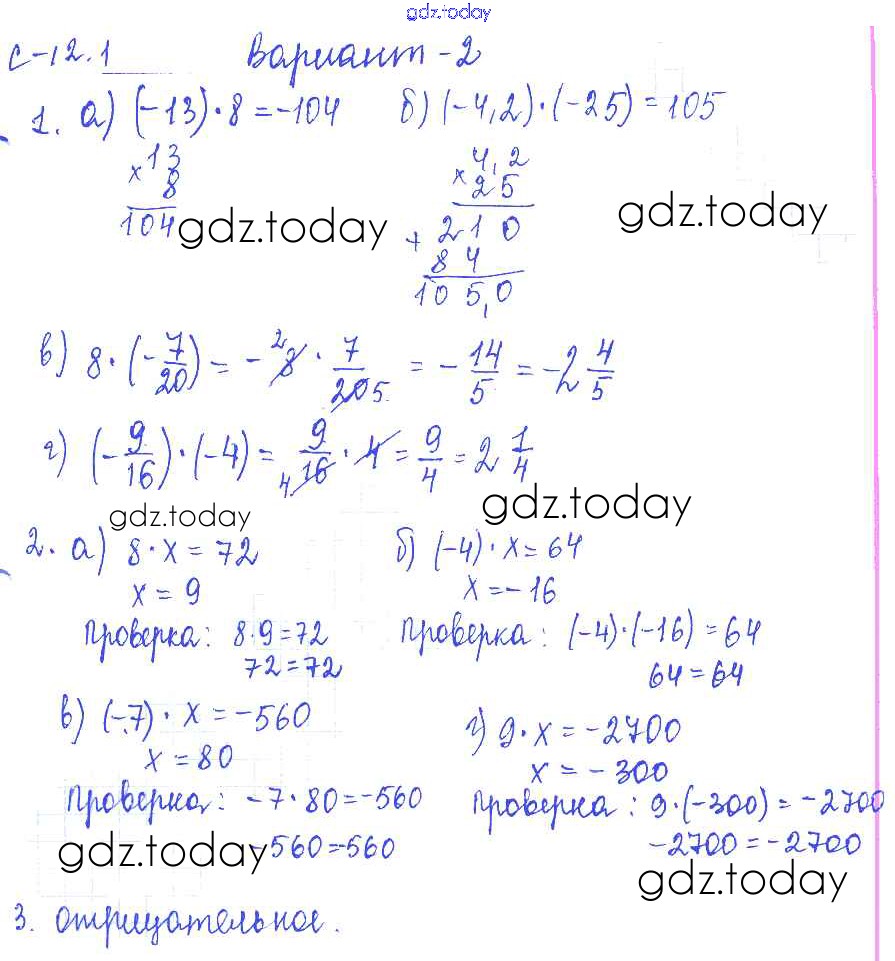 gdz.today
С-12.1 Вариант-2
1. а) (-13)·8=-104 б) (-4,2)·(-25)=105
×13 ×4,2
8 25
104 +210
84
105,0
gdz.today gdz.today
в) 8·(-7/20) = -8·7/20 = -14/5 = -2 4/5
2 5
г) (-9/16)·(-4) = 9/16·4 = 9/4 = 2 1/4
4
gdz.today gdz.today
2. а) 8·x=72 б) (-4)·x=64
x=9 x=-16
Проверка: 8·9=72 Проверка: (-4)·(-16)=64
72=72 64=64
в) (-7)·x=-560 г) 9·x=-2700
x=80 x=-300
Проверка: -7·80=-560 Проверка: 9·(-300)=-2700
-560=-560 -2700=-2700
gdz.today gdz.today
3. отрицательное.